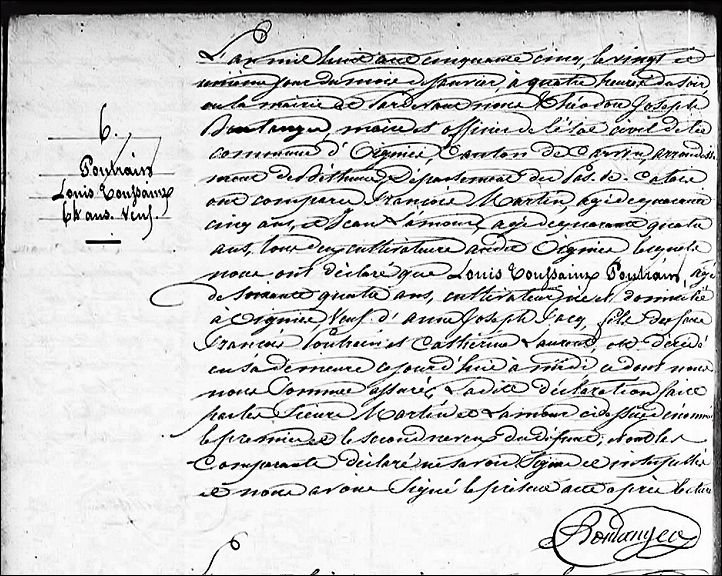 6.
Poutrain
Louis Toussaint
64 ans. Veuf.
L'an mil huit cent cinquante cinq, le vingt et
unième jour du mois de janvier, à quatre heures du soir
en la mairie et pardevant nous Théodore Joseph
Boulanger, maire et officier de l'état civil de la
commune d'Oignies, Canton de Carvin, arrondisse
ment de Béthune, Département du Pas-de-Calais
ont comparu François Martin, agé de quarante
cinq ans, et Jean Lamour, agé de quarante quatre
ans, tous deux cultivateurs audit Oignies lesquels
nous ont déclaré que Louis Toussaint Poutrain, agé
de soixante quatre ans, cultivateur, né et domicilié
à Oignies, Veuf d'Anne Joseph Jacq, fils de feu
François Poutrain et Catherine Laurent, est décédé
en sa demeure ce jourd'hui à midi ce dont nous
nous sommes assuré, Ladite déclaration faite
par les Sieurs Martin et Lamour ci dessus dénommés
le premier et le second neveux du défunt; et ont les
Comparants déclaré ne savoir signer de ce interpellés
et nous avons signé le présent acte après lecture
Boulanger